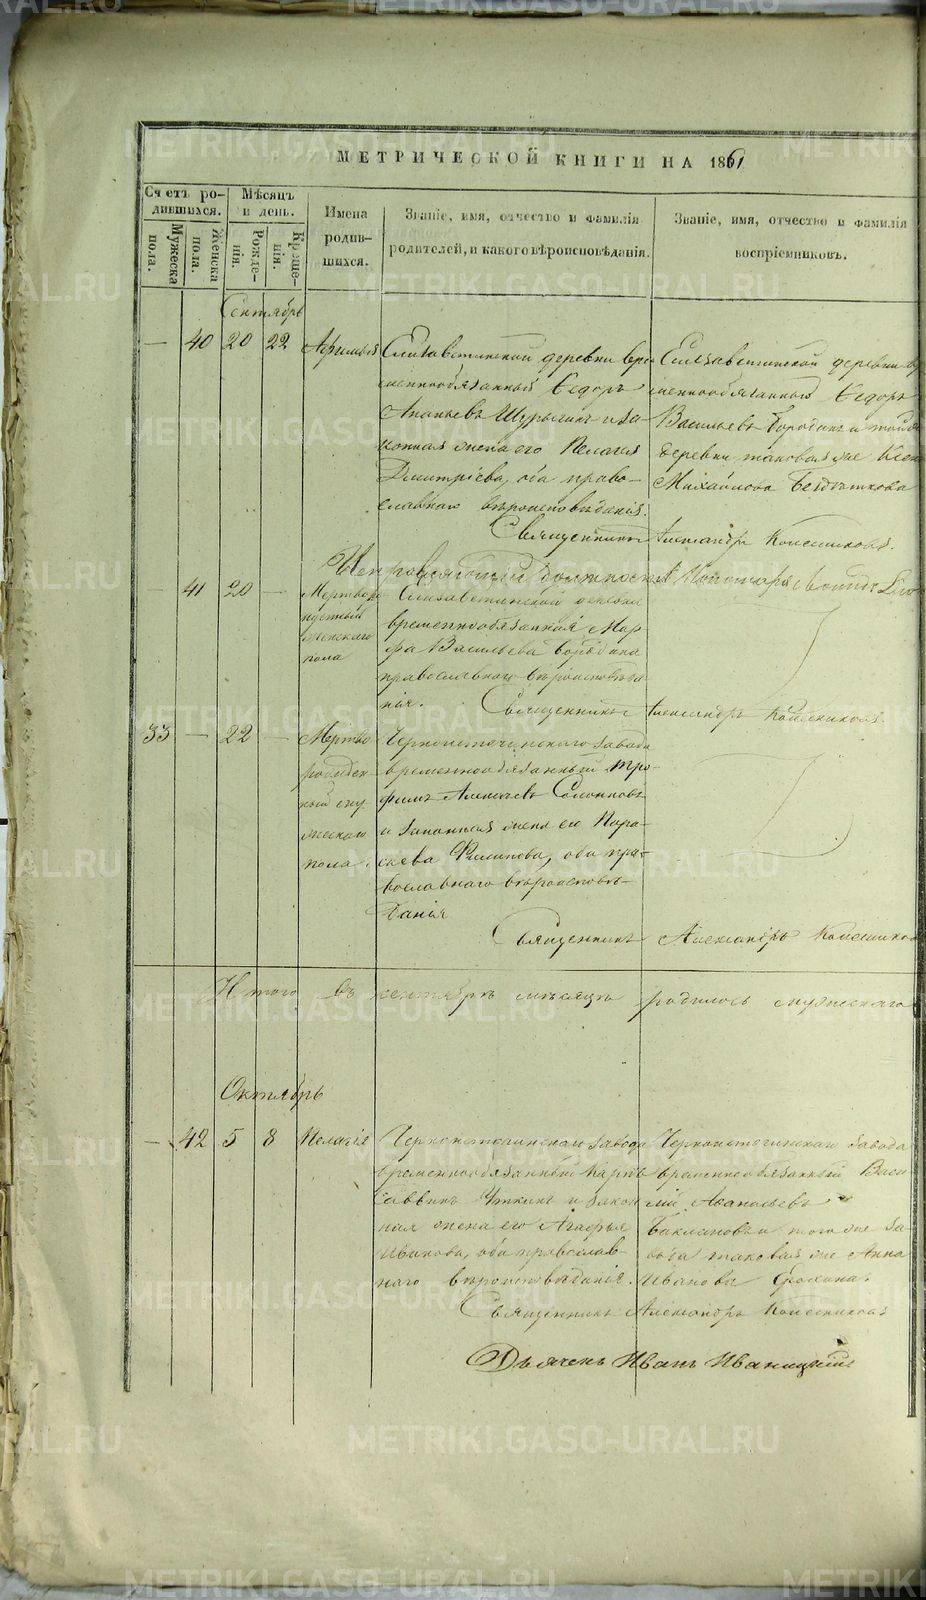 МЕТРИЧЕСКОЙ КНИГИ НА 1861
Счетъ родившихся.
Мужеска пола.
Женска пола.
Мѣсяцъ и день.
Рожденія.
Крещенія.
Имена родившихся.
Званіе, имя, отчество и фамилія родителей, и какого вѣроисповѣданія.
Званіе, имя, отчество и фамилія воспріемниковъ.
Сентябрь
— 40 20 22
Елизаветинской деревни вре
меннообязанный Ѳедоръ
Ананьевъ Шурыгинъ и за-
конная жена его Пелагея
Дмитріева, оба право-
славнаго вѣроисповѣданія.
Елизаветинской деревни вр
меннообязанный Ѳедоръ
Васильевъ Бородинъ и той же
деревни таковая же
Михайлова
Священникъ Александръ
Исправляющій должность Пономаря
— 41 20 —
Мертворо
женскаго
пола
Елизаветинской деревни
временнообязанная Мар
фа Васильева Бородина
православнаго вѣроисповѣда
нія.
Священникъ Александръ
33 — 22 —
Мертво
рожден
ный му
жескаго
пола.
Черноисточинскаго завода
временнообязанный Тро-
фимъ Алексѣевъ
и законная жена его Пара-
скева Филипова, оба пра-
вославнаго вѣроисповѣ-
данія
Священникъ Александръ
Итого въ сентябрѣ мѣсяцѣ родилось мужескаго
Октябрь
— 42 5 8 Пелагія
Черноисточинскаго завода
временнообязанный Карпъ
Саввинъ Уткинъ и закон
ная жена его Агафья
Иванова, оба православ-
наго вѣроисповѣданія.
Черноисточинскаго завода
временнообязанный Васи
лій Аѳанасьевъ
Баклановъ и того же за
вода таковая же Анна
Иванова
Священникъ Александръ
Дьячекъ Иванъ Иваницкій
METRIKI.GASO-URAL.RU